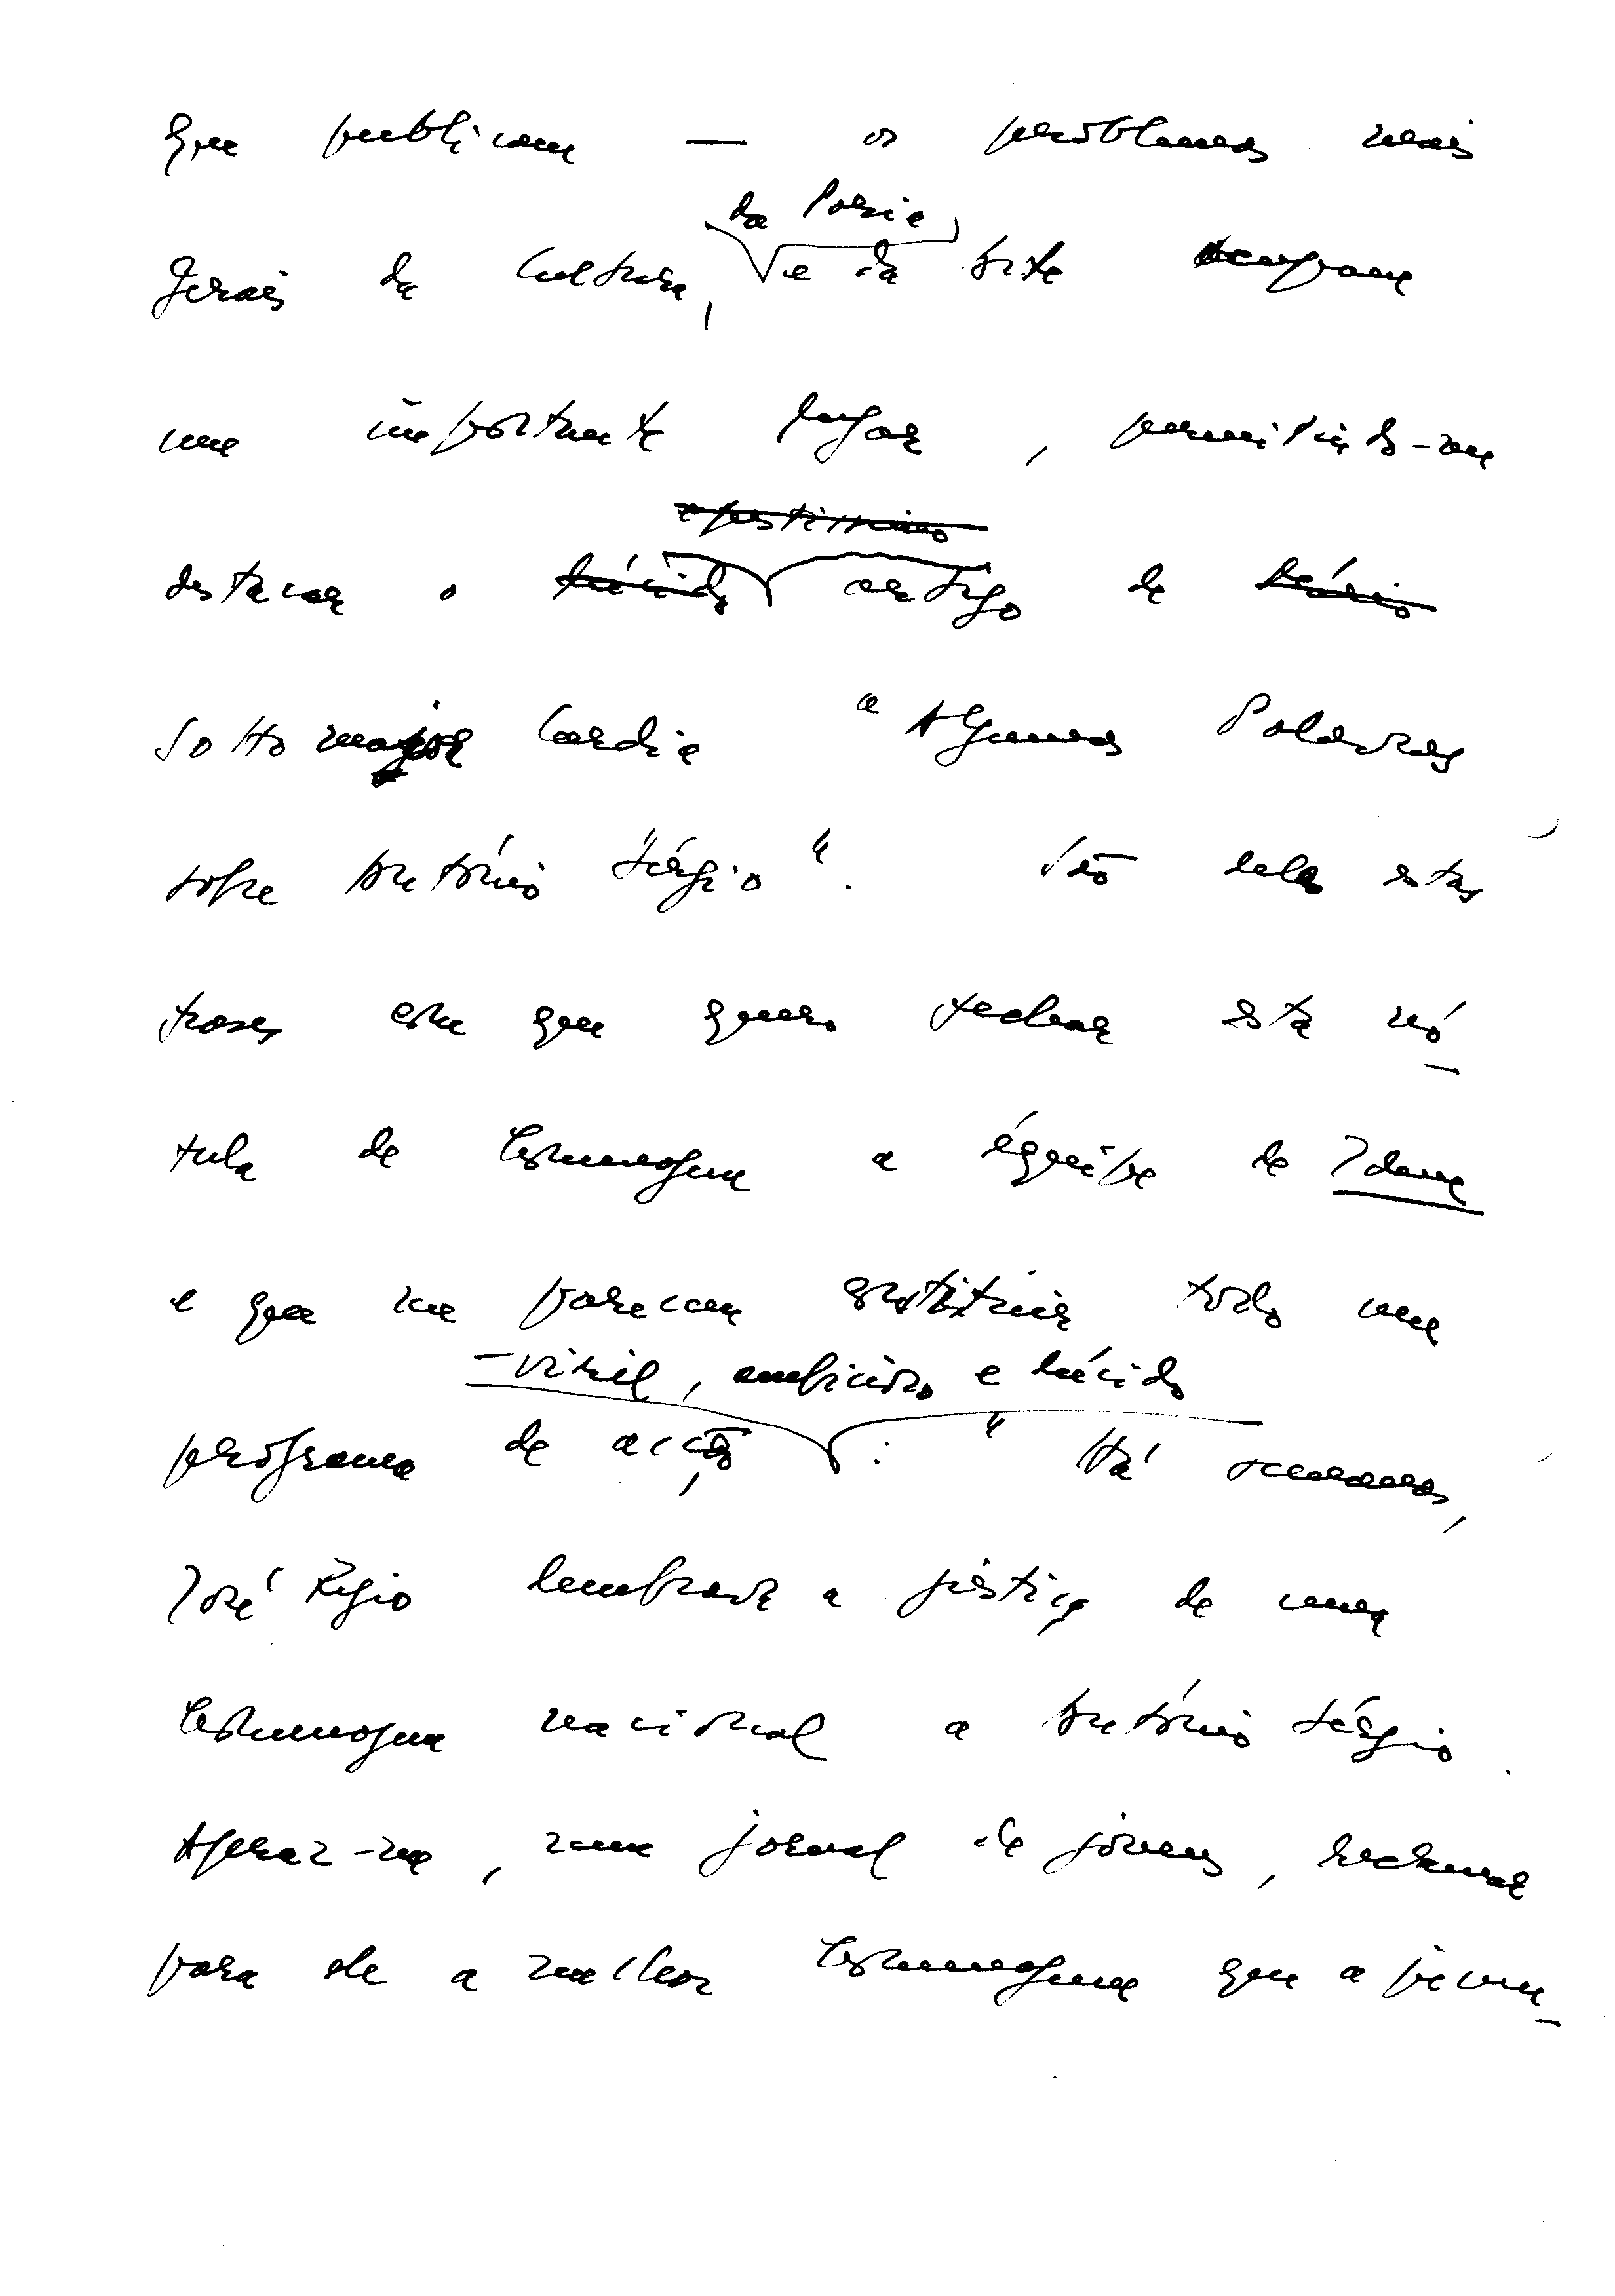 que publicam — os problemas mais
da Poesia
gerais da Cultura, e da Arte ocupam
um importante lugar, permitindo-me
destacar o lúcido artigo de Mário
Sottomajor Cardia "Algumas Palavras
sobre António Sérgio". São dele estas
frases com que quero fechar esta nó-
tula de homenagem a équipe de Idem
e que me parecem constituir todo um
—viril, ambicioso e lúcido
programa de acção: "Há semanas,
José Régio lembrava a justiça de uma
homenagem nacional a António Sérgio.
Apraz-me, num jornal de jóvens, reclamar
para ele a melhor homenagem que a juven-